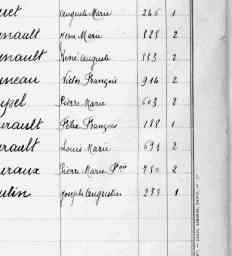 uet Auguste Marie 246 1
enault Jean Marie 828 2
enault René Auguste 553 2
uneau Victor François 914 2
ysel Pierre Marie 603 2
urault Félix François 188 1
urault Louis Marie 691 2
uraux Pierre Marie Fois 750 2
utin Joseph Augustin 233 1